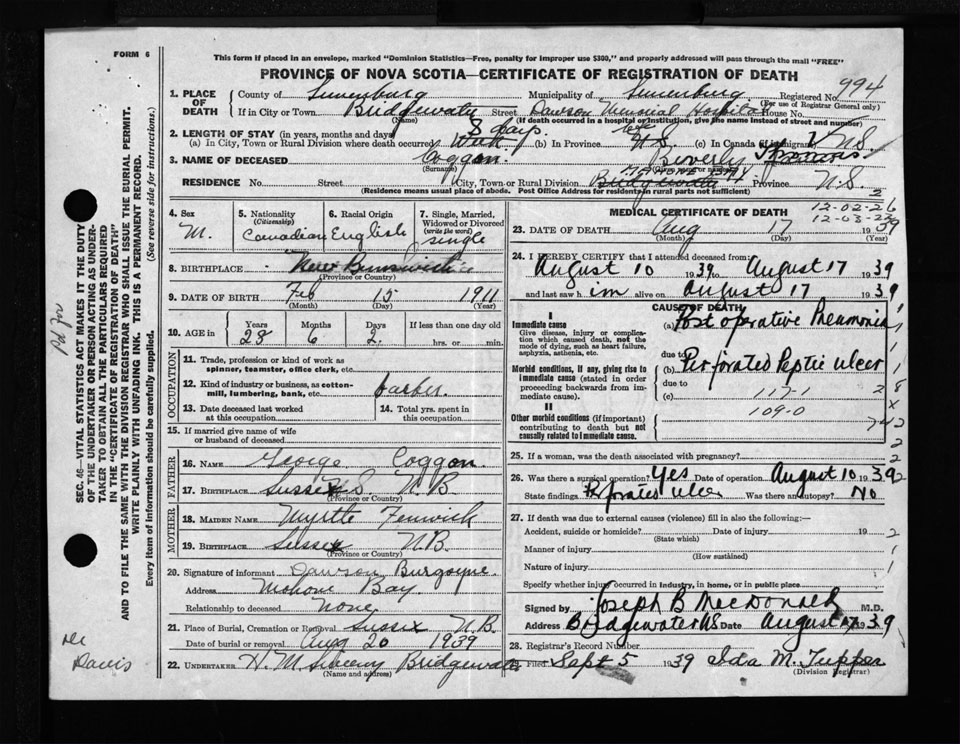 FORM 6
This form if placed in an envelope, marked "Dominion Statistics—Free, penalty for improper use $300," and properly addressed will pass through the mail "FREE"
PROVINCE OF NOVA SCOTIA—CERTIFICATE OF REGISTRATION OF DEATH
994
1. PLACE OF DEATH
County of Lunenburg Municipality of Lunenburg Registered No.
(For use of Registrar General only)
If in City or Town Bridgewater Street Dawson Memorial Hospital House No.
(If death occurred in a hospital or institution, give the name instead of street and number)
2. LENGTH OF STAY (in years, months and days) 8 days.
(a) In City, Town or Rural Division where death occurred (b) In Province N.S. (c) In Canada (if immigrant)
3. NAME OF DECEASED Coggon. Beverly
(Surname) (Given name or names)
RESIDENCE No. Street City, Town or Rural Division Bridgewater Province N.S.
(Residence means usual place of abode. Post Office Address for residents in rural parts not sufficient)
4. Sex M.
5. Nationality (Citizenship) Canadian
6. Racial Origin English
7. Single, Married, Widowed or Divorced (write the word) Single
8. BIRTHPLACE New Brunswick
(Province or Country)
9. DATE OF BIRTH Feb 15 1911
(Month) (Day) (Year)
10. AGE in Years Months Days If less than one day old
28 6 2. hrs. or min.
OCCUPATION
11. Trade, profession or kind of work as spinner, teamster, office clerk, etc.
12. Kind of industry or business, as cotton-mill, lumbering, bank, etc. barber.
13. Date deceased last worked at this occupation
14. Total yrs. spent in this occupation
15. If married give name of wife or husband of deceased
FATHER
16. NAME George Coggon.
17. BIRTHPLACE Sussex N.B.
(Province or Country)
MOTHER
18. MAIDEN NAME Myrtle Fenwick
19. BIRTHPLACE Sussex N.B.
(Province or Country)
20. Signature of informant Dawson Burgoyne.
Address Mahone Bay.
Relationship to deceased None
21. Place of Burial, Cremation or Removal Sussex N.B.
Date of burial or removal Aug 20 1939
22. UNDERTAKER H. M. Bridgewater
(Name and address)
MEDICAL CERTIFICATE OF DEATH
12-02-26
23. DATE OF DEATH Aug 17 1939
(Month) (Day) (Year)
24. I HEREBY CERTIFY that I attended deceased from:
August 10 1939 to August 17 1939
and last saw him alive on August 17 1939
CAUSE OF DEATH
I
Immediate cause
Give disease, injury or complication which caused death, not the mode of dying, such as heart failure, asphyxia, asthenia, etc.
(a) Post operative Pneumonia
due to
Morbid conditions, if any, giving rise to immediate cause (stated in order proceeding backwards from immediate cause)
(b) Perforated Peptic ulcer
due to
(c) 117-1
109-0
II
Other morbid conditions (if important) contributing to death but not causally related to immediate cause.
25. If a woman, was the death associated with pregnancy?
26. Was there a surgical operation? Yes Date of operation August 10 1939
State findings Perforated ulcer Was there an autopsy? No
27. If death was due to external causes (violence) fill in also the following:—
Accident, suicide or homicide? Date of injury 19
(State which)
Manner of injury
(How sustained)
Nature of injury
Specify whether injury occurred in industry, in home, or in public place
Signed by Joseph B MacDonald M.D.
Address Bridgewater NS Date August 17 1939
28. Registrar's Record Number
29. Filed Sept 5 1939 Ida M. Tupper
(Division Registrar)
SEC. 46—VITAL STATISTICS ACT MAKES IT THE DUTY
OF THE UNDERTAKER OR PERSON ACTING AS UNDERTAKER TO OBTAIN ALL THE PARTICULARS REQUIRED
IN THE "CERTIFICATE OF REGISTRATION OF DEATH"
AND TO FILE THE SAME WITH THE DIVISION REGISTRAR WHO SHALL ISSUE THE BURIAL PERMIT.
WRITE PLAINLY WITH UNFADING INK. THIS IS A PERMANENT RECORD.
Every item of information should be carefully supplied. (See reverse side for instructions.)
Pd for
Davis